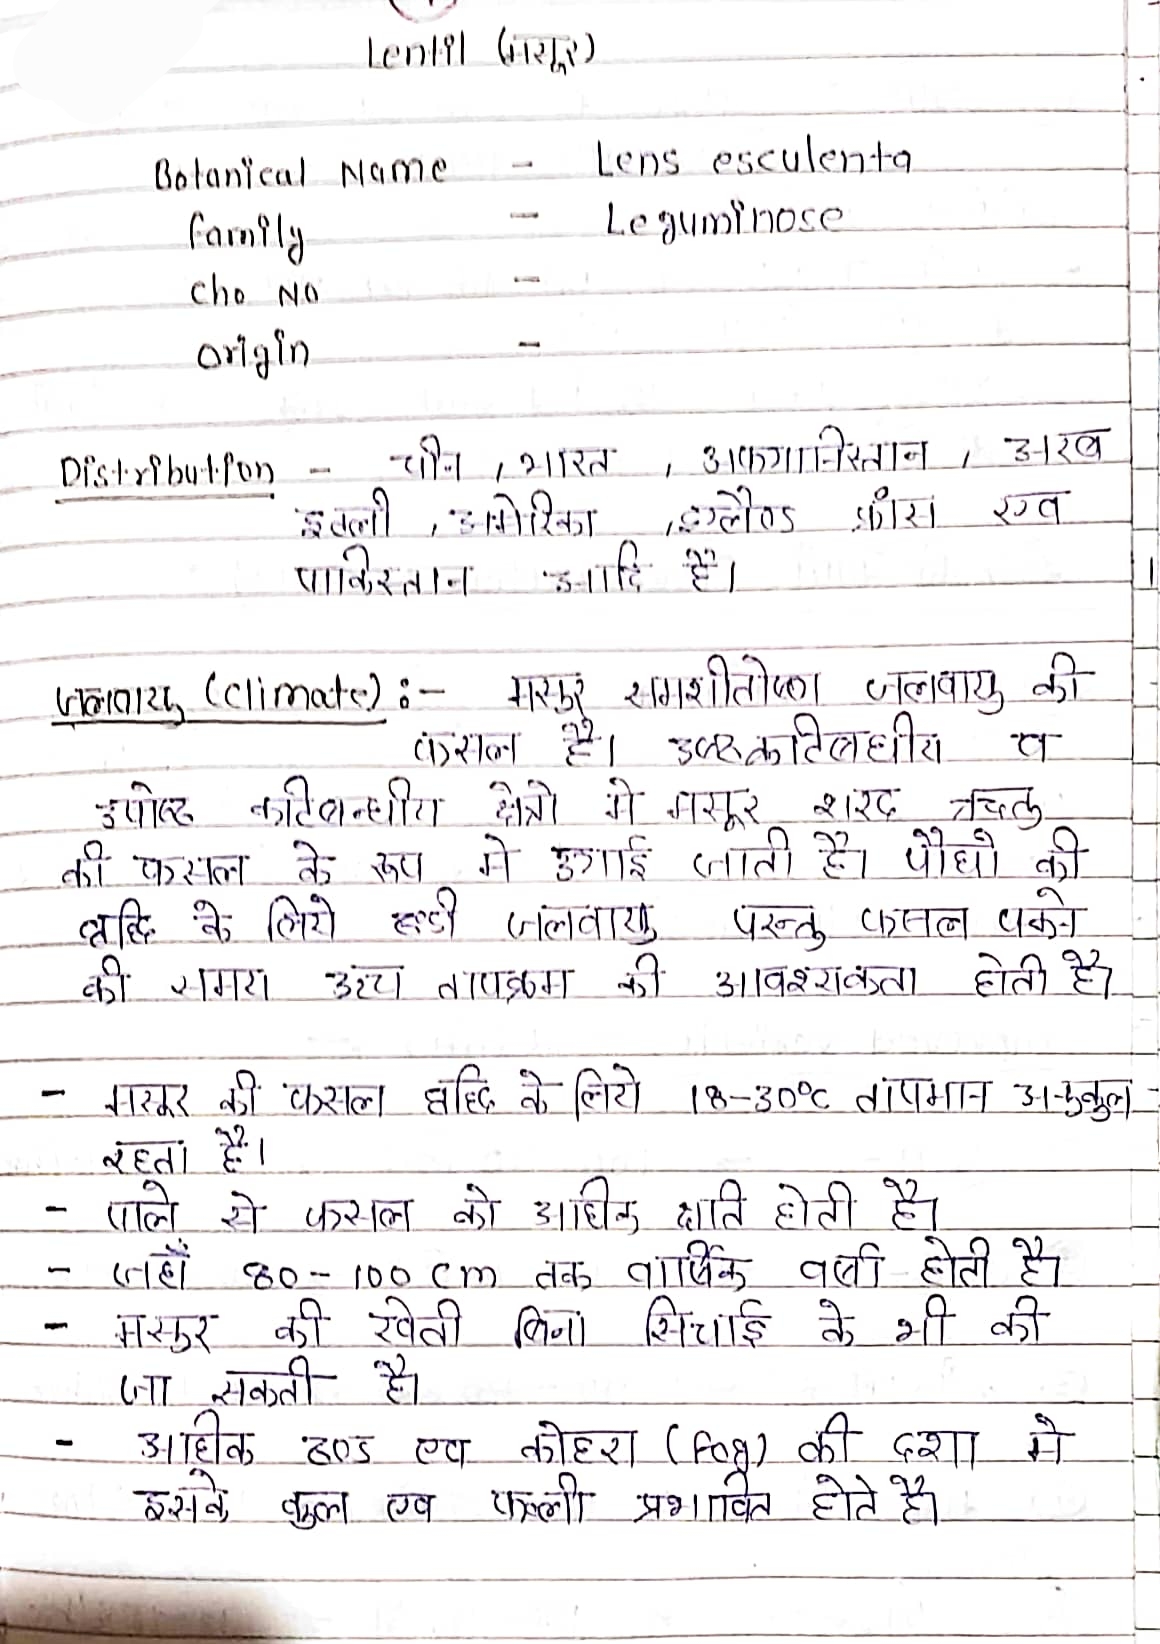 Lentil (मसूर)
Botanical Name - Lens esculenta
family - Leguminose
Cho No -
origin -
Distribution - चीन, भारत, अफगानिस्तान, अरब
इटली, अमेरिका, इग्लैण्ड फ्रांस एव
पाकिस्तान आदि हैं।
जलवायु (climate) :- मसूर समशीतोष्ण जलवायु की
फसल है। उष्णकटिबधीय व
उपोष्ण कटिबन्धीय क्षेत्रो मे मसूर शरद ऋतु
की फसल के रूप मे उगाई जाती है। पौधो की
वृद्दि के लिये ठण्डी जलवायु परन्तु फसल पकने
की समय उच्च तापक्रम की आवश्यकता होती है
- मसूर की फसल वृद्दि के लिये 18-30°c तापमान अनुकुल
रहता है।
- पाले से फसल को अधिक क्षति होती है।
- जहाँ 80-100 cm तक वार्षिक वर्षा होती है।
- मसूर की खेती बिना सिचाई के भी की
जा सकती है।
- अधिक ठण्ड एव कोहरा (fog) की दशा मे
इसके फुल एव फल्ली प्रभावित होते है।